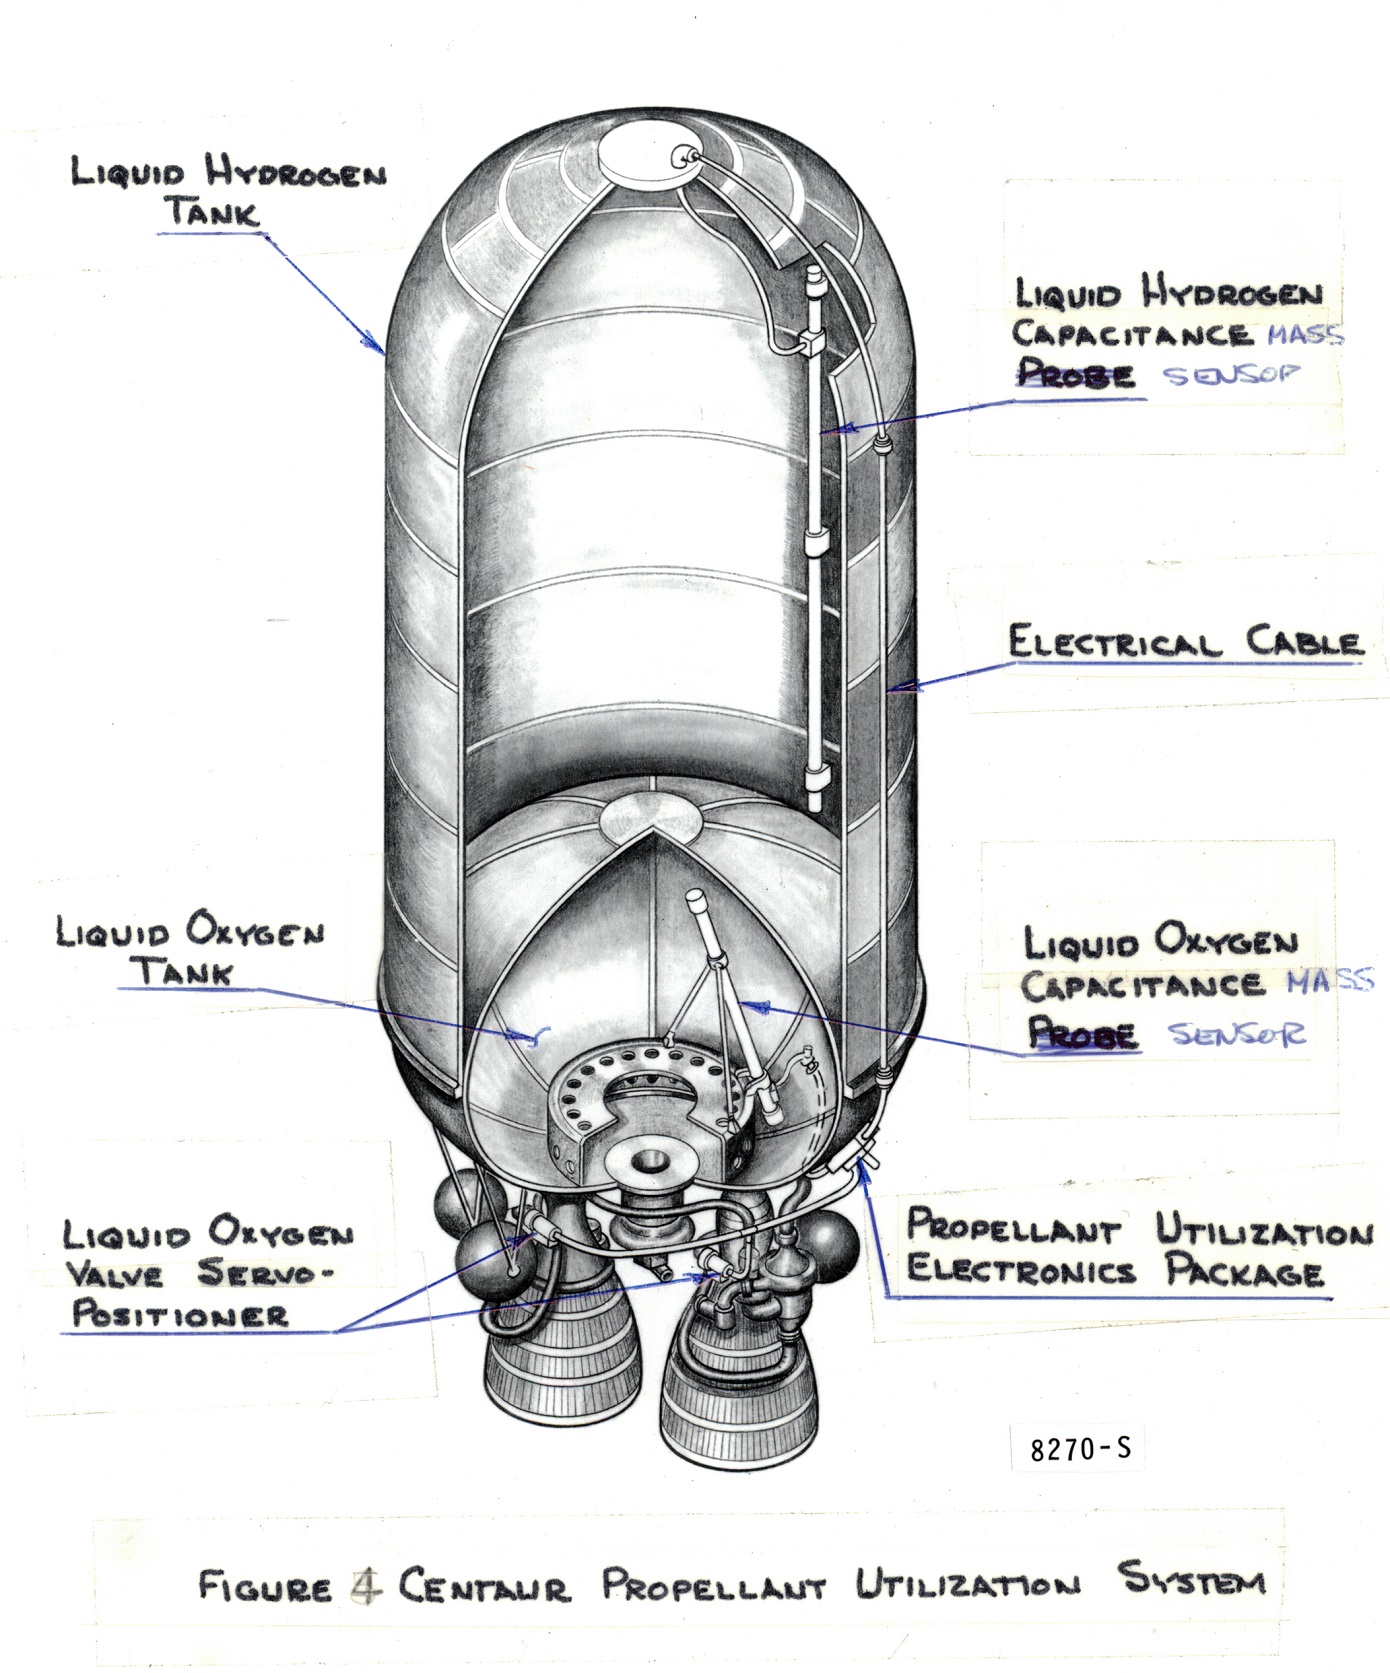 LIQUID HYDROGEN
TANK
LIQUID HYDROGEN
CAPACITANCE MASS
PROBE SENSOR
ELECTRICAL CABLE
LIQUID OXYGEN
TANK
LIQUID OXYGEN
CAPACITANCE MASS
PROBE SENSOR
LIQUID OXYGEN
VALVE SERVO-
POSITIONER
PROPELLANT UTILIZATION
ELECTRONICS PACKAGE
8270-S
FIGURE 4 CENTAUR PROPELLANT UTILIZATION SYSTEM